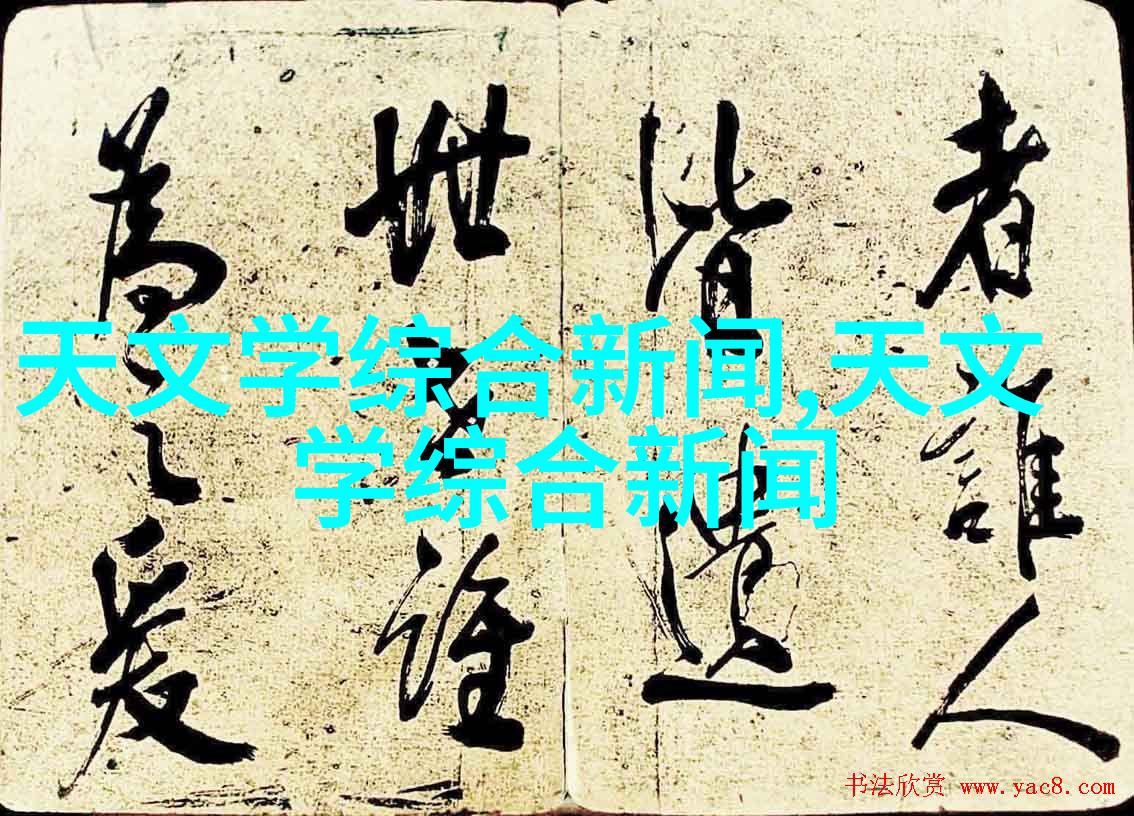 者誰人
皆遺
世誰
為之
天文学综合新闻,天文
学综合新闻
书法欣赏 www.yac8.com